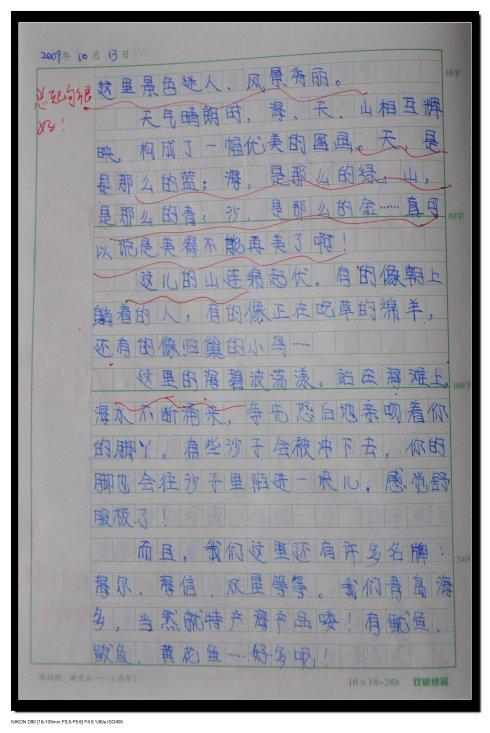 2009年 10月 13日
16字
这里景色迷人、风景秀丽。
总起句很
好！
天气晴朗时，海、天、山相互辉
映，构成了一幅优美的图画。天，是
是那么的蓝；海，是那么的绿；山，
是那么的青；沙，是那么的金……真可
80字
以说是美得不能再美了啊！
这儿的山连绵起伏。有的像朝上
躺着的人，有的像正在吃草的绵羊，
还有的像归巢的小鸟……
这里的海碧波荡漾。站在海滩上，
160字
海水不断涌来，争先恐后地亲吻着你
的脚丫。有些沙子会被冲下去，你的
脚也会往沙子里陷进一点儿。感觉舒
服极了！
而且，我们这里还有许多名牌：
240字
海尔、海信、双星等等。我们青岛海
多，当然就特产海产品喽！有鱿鱼、
黄花鱼……好多呢！
16×18=288
NIKON D80 [18-105mm F3.5-F5.6] F4.5 1/60s ISO400